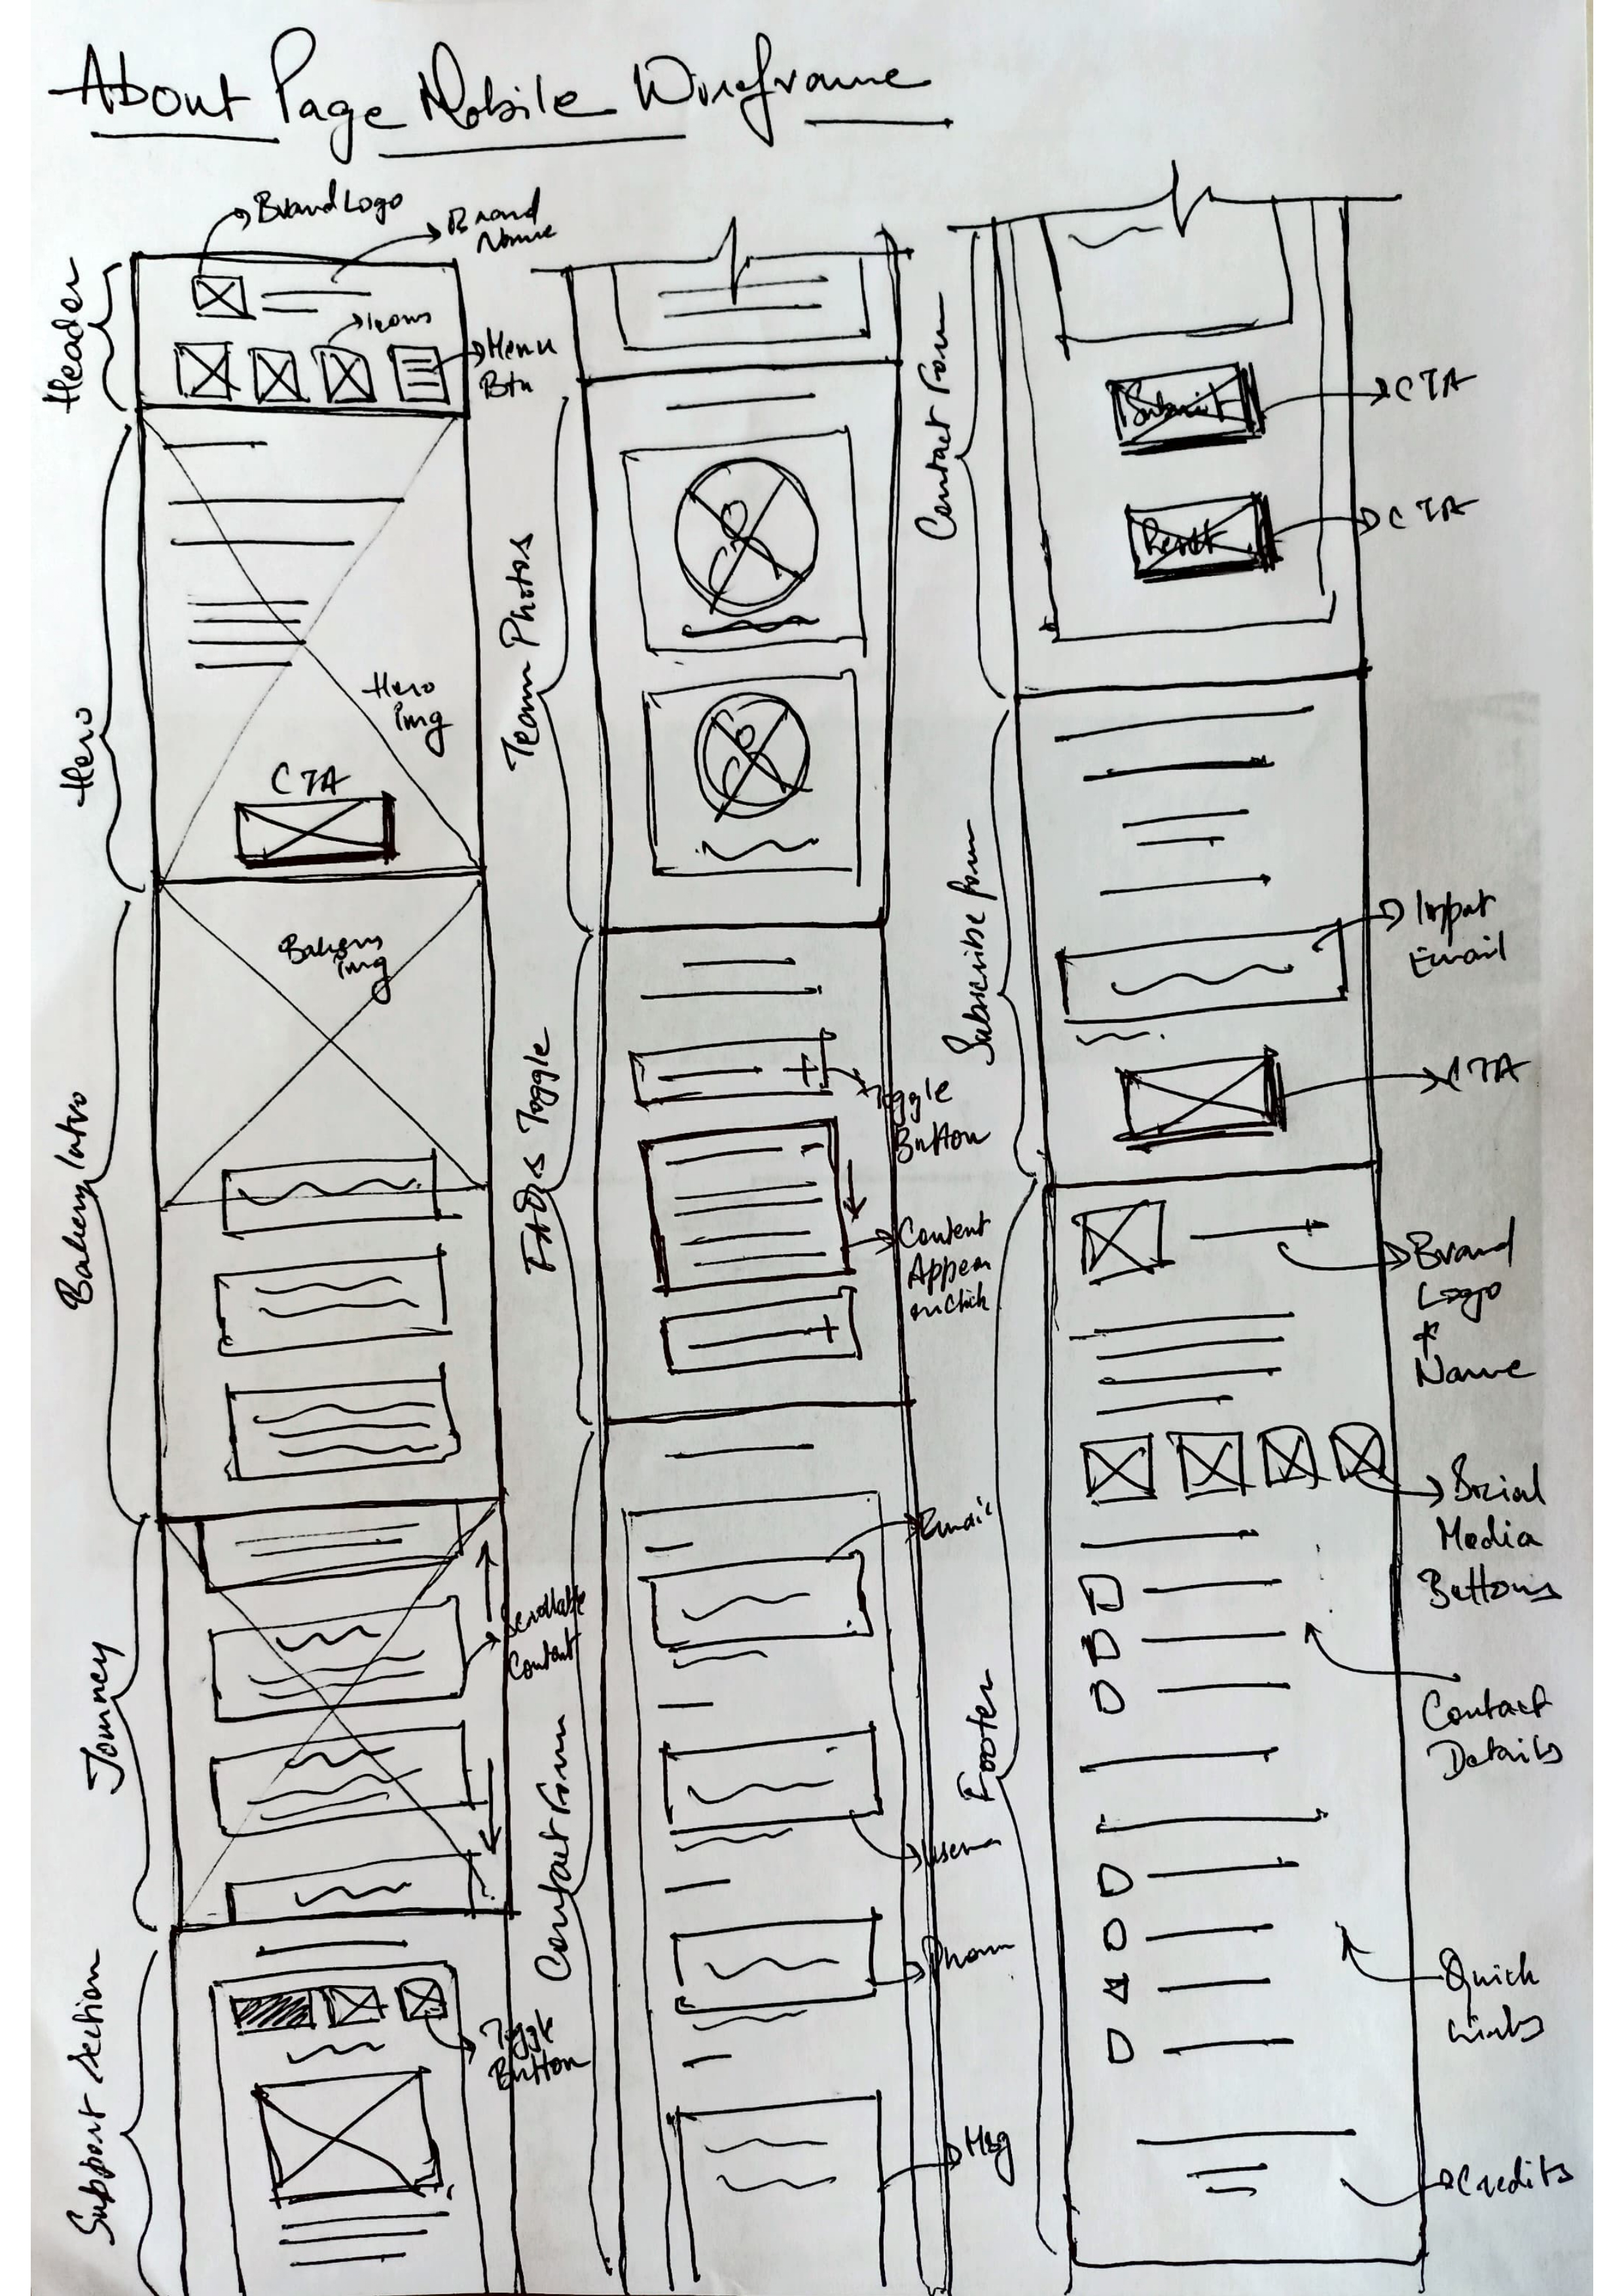 About Page Mobile Wireframe
Brand Logo
Brand
Name
Header
Icons
Menu
Btn
Hero
Hero
img
CTA
Bakery Intro
Bakery
img
Journey
Scrollable
Content
Support Section
Toggle
Button
Team Photos
FAQs Toggle
Toggle
Button
Content
Appear
onClick
Contact Form
Email
Phone
Msg
Contact Form
Submit
CTA
Reset
CTA
Subscribe form
Input
Email
CTA
Footer
Brand
Logo
&
Name
Social
Media
Buttons
Contact
Details
Quick
Links
Credits